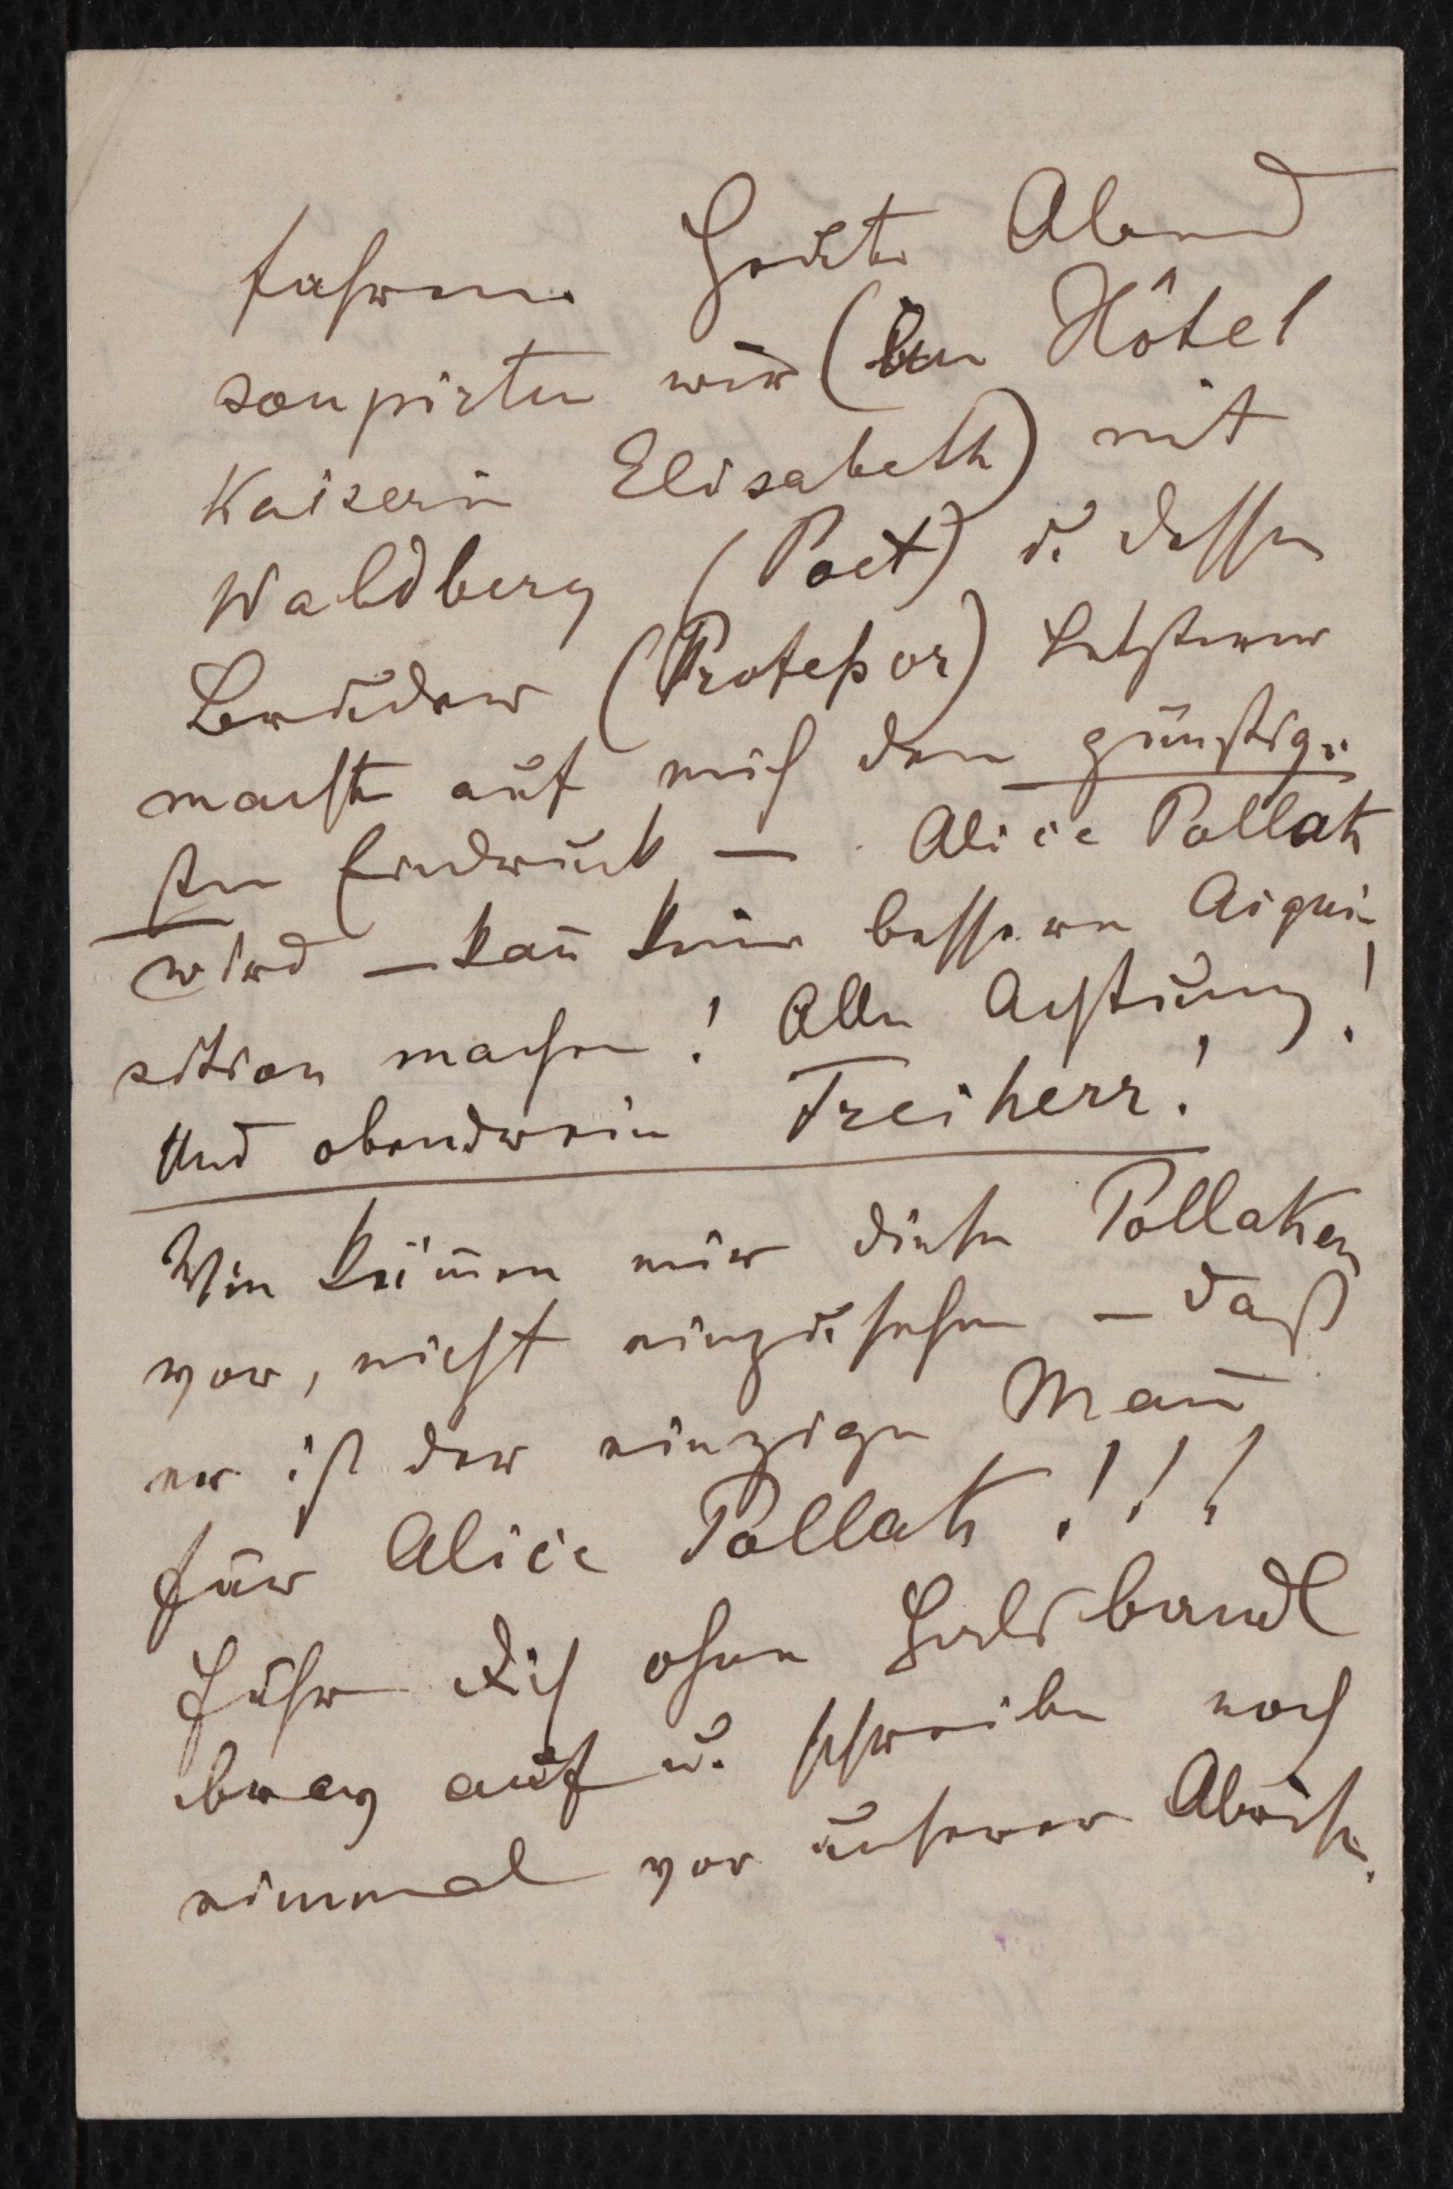 fahren. Heute Abend
soupirten wir (im Hôtel
Kaiserin Elisabeth) mit
Waldberg (Poet) u. dessen
Bruder (Profeßor) Letzterer
machte auf mich den günstig-
sten Eindruck — Alice Pollak
wird — kan̄ keine bessere Aiqui-
sition machen! Alle Achtung!
Und obendrein Freiherr!
Wie kom̄en mir diese Pollaken
vor, nicht einzusehen — daß
er ist der einzige Man̄
für Alice Pollak!!!
Führ Dich ohne Halsbandl
brav auf u. schreibe noch
einmal vor unserer Abreise.